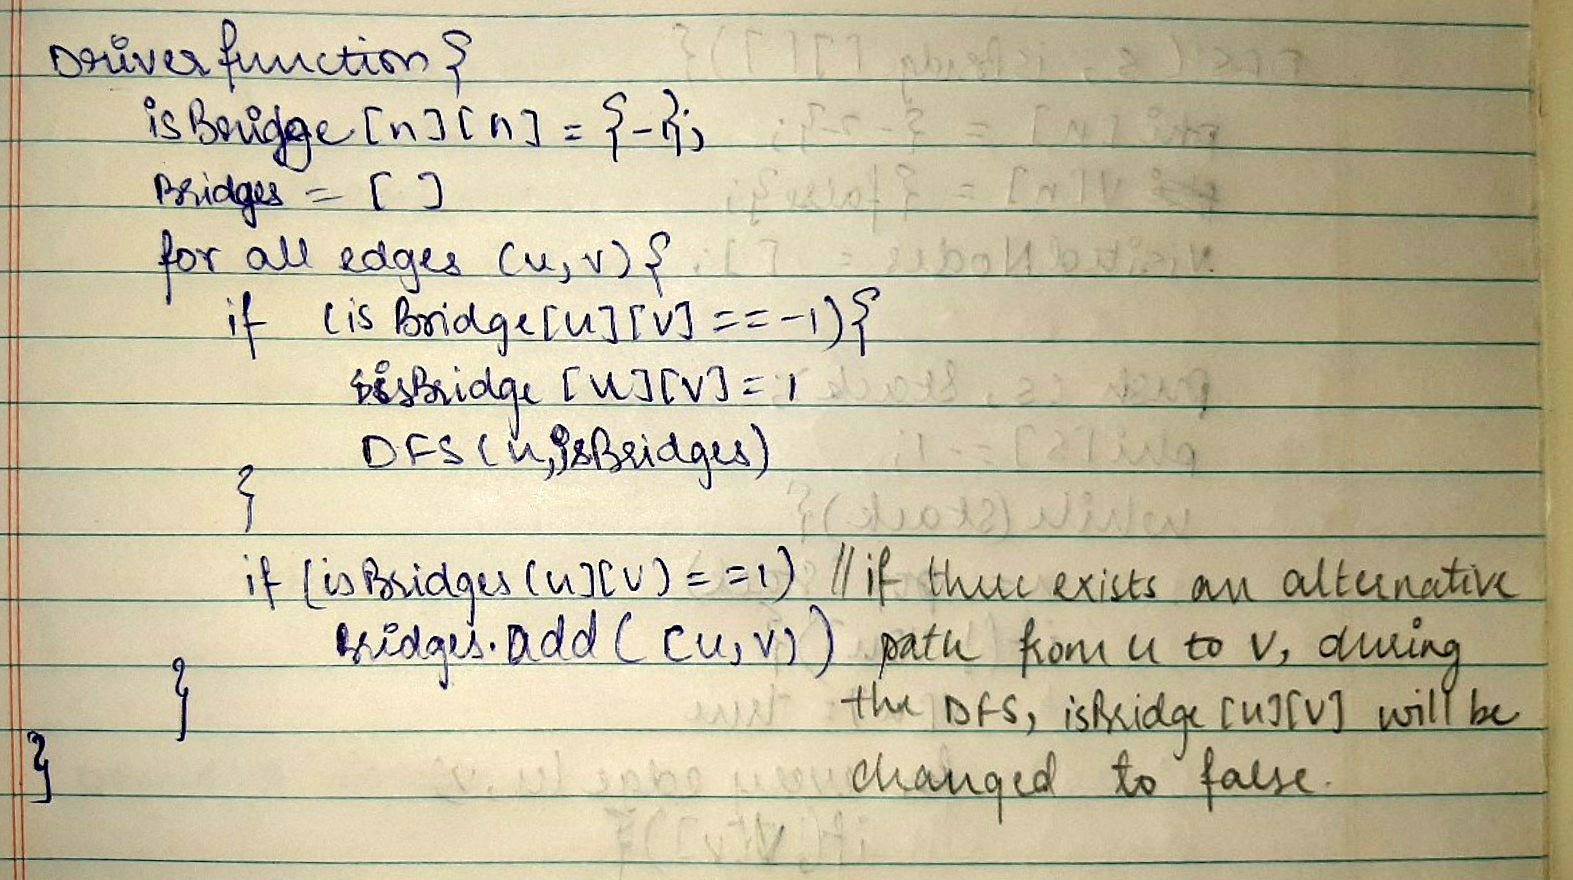 Driver function {
isBridge [n][n] = {-1};
Bridges = [ ]
for all edges (u, v) {
if (is Bridge[u][v] == -1) {
isBridge [u][v] = 1
DFS (u, isBridges)
}
if (is Bridges [u][v] == 1) // if there exists an alternative
Bridges. add ( (u, v) ) path from u to v, during
the DFS, isBridge [u][v] will be
changed to false.
}
}